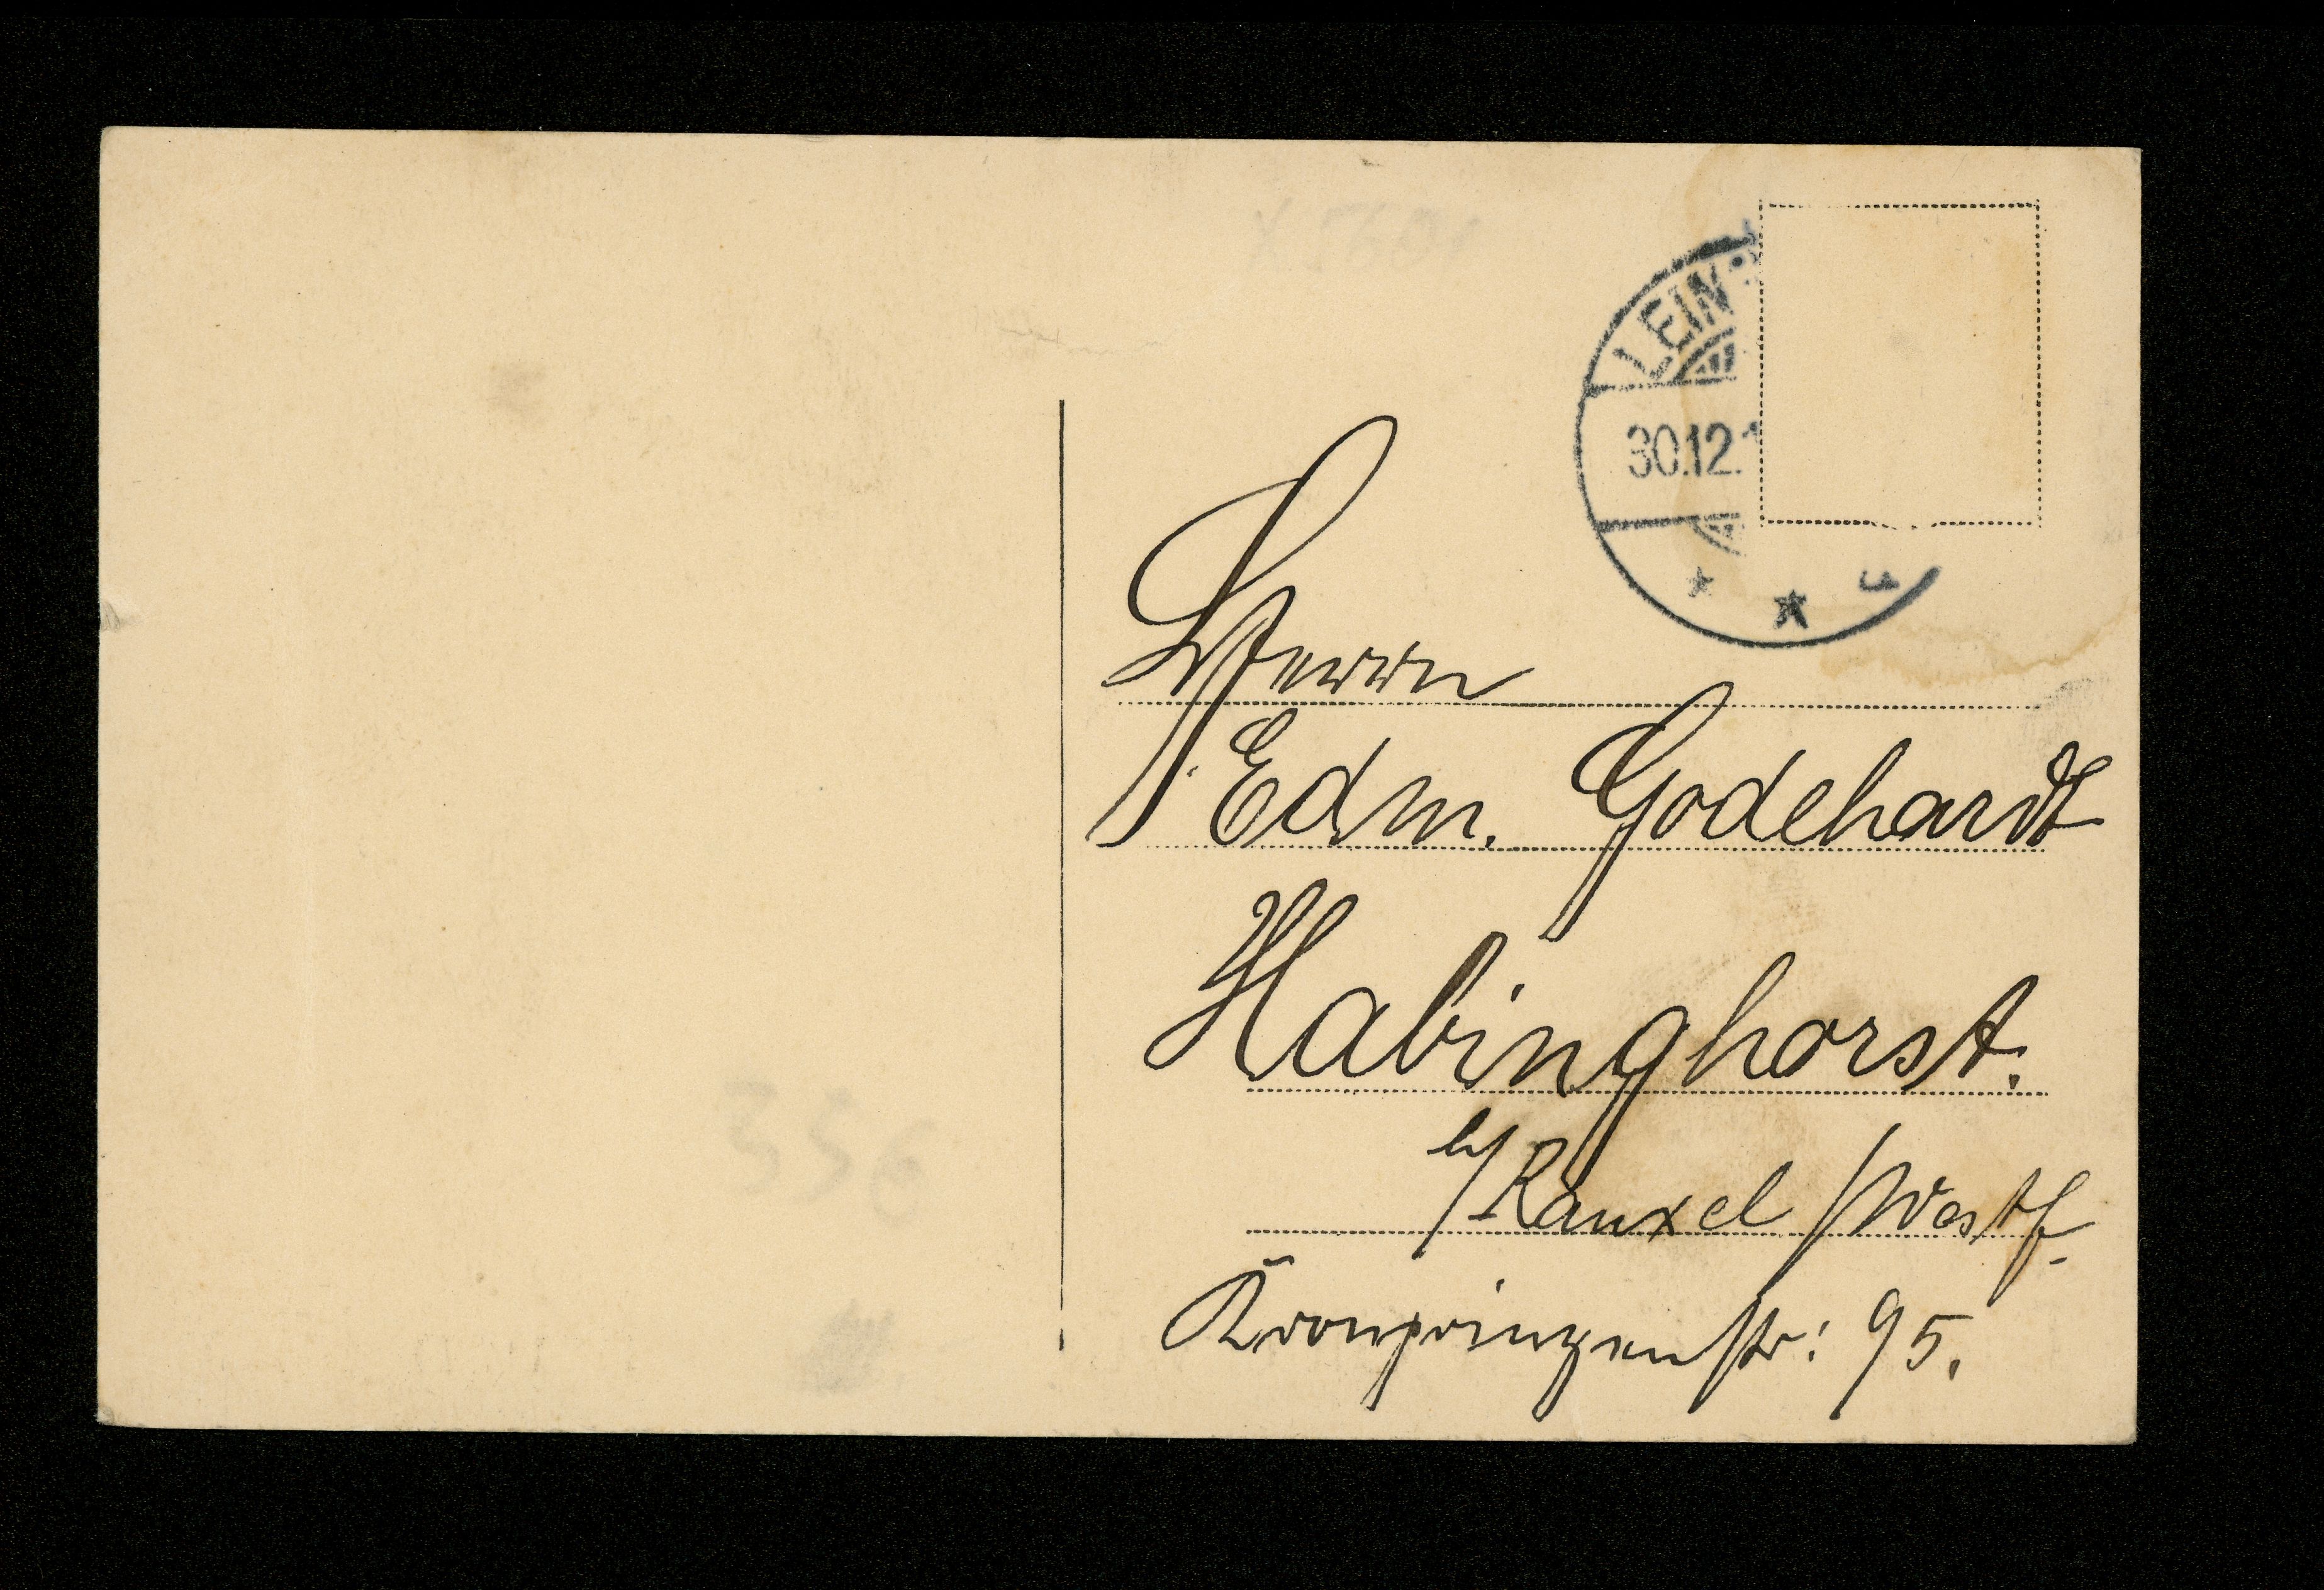 LEIN
30.12.1
* * *
Herrn
Edm. Godehardt
Habinghorst.
b/Rauxel /Westf.
Kronprinzenstr: 95.